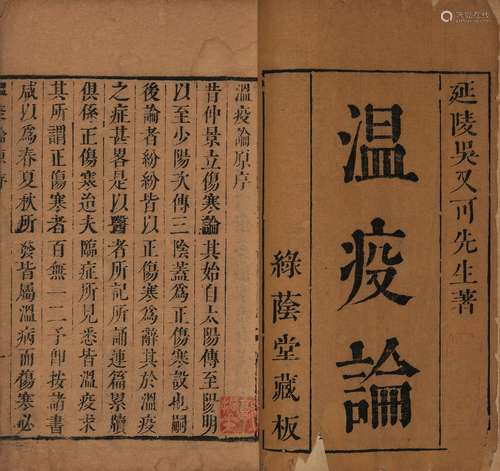 延陵吳又可先生著
温疫論
綠蔭堂藏板
溫疫論原序
昔仲景立傷寒論其始自太陽傳至陽明
以至少陽次傳三陰蓋為正傷寒設也嗣
後論者紛紛皆以正傷寒為辭其於溫疫
之症甚畧是以醫者所記所誦連篇累牘
俱係正傷寒迨夫臨症所見悉皆溫疫求
其所謂正傷寒者百無一二予卽按諸書
咸以爲春夏秋所發皆屬溫病而傷寒必